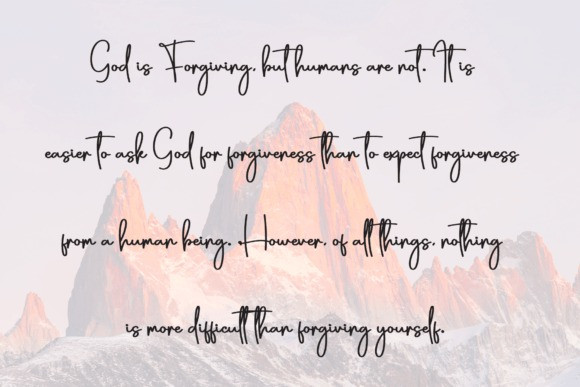 God is Forgiving, but humans are not. It is
easier to ask God for forgiveness than to expect forgiveness
from a human being. However, of all things, nothing
is more difficult than forgiving yourself.